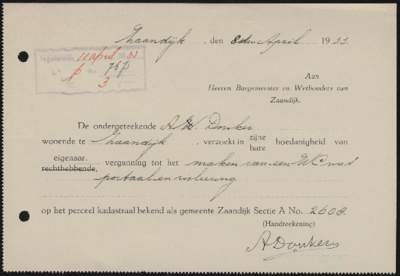 Zaandijk, den 8 den April 1933
Ingekomen 10 april 33
No. 757
3
Aan
Heeren Burgemeester en Wethouders van
Zaandijk.
De ondergeteekende A W Donker
wonende te Zaandijk, verzoekt in zijne hoedanigheid van
hare
eigenaar, vergunning tot het maken van een WC met
rechthebbende,
portaal en rioleering
op het perceel kadastraal bekend als gemeente Zaandijk Sectie A No. 2608.
(Handteekening)
A Donker